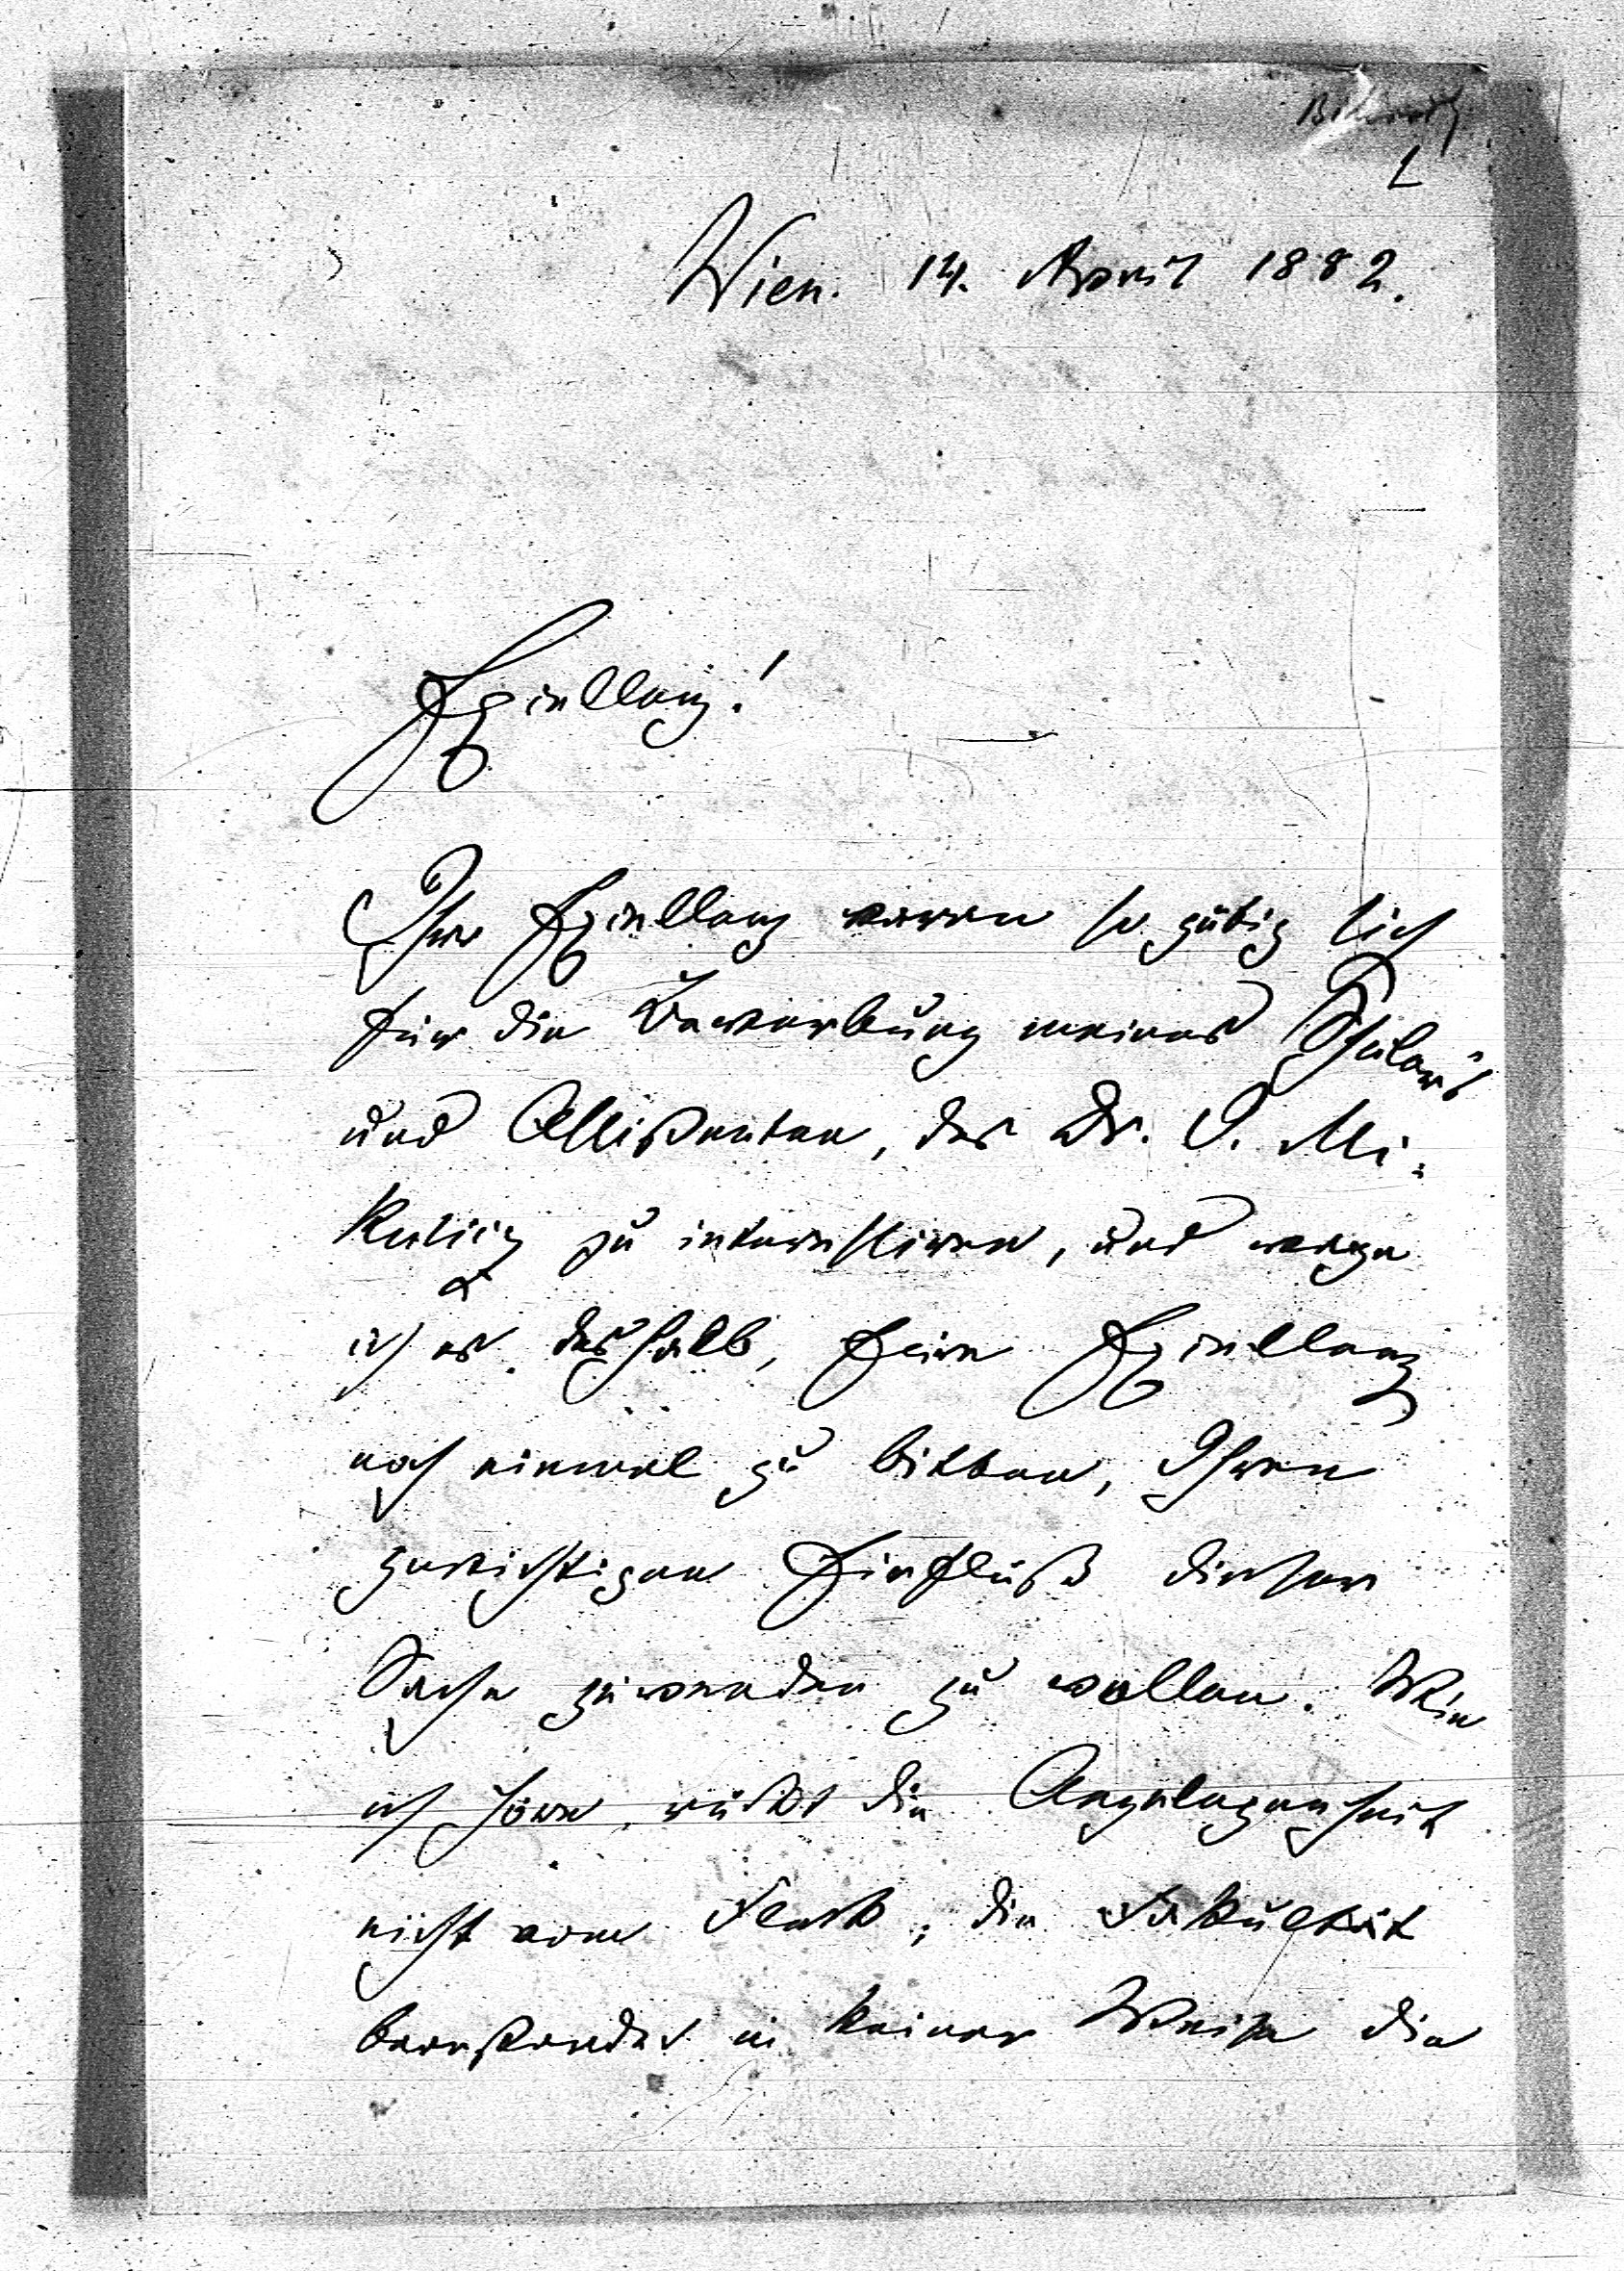 Billroth
1
Wien. 14. April 1882.
Excellenz!
Ihre Excellenz waren so gütig sich
für die Bewerbung meines Schülers
und Assistenten, des Dr. J. Mi-
kulicz zu interessiren, und wage
ich es deshalb, Eure Excellenz
noch einmal zu bitten, Ihren
gewichtigen Einfluß dieser
Sache zuwenden zu wollen. Wie
ich höre, rückt die Angelegenheit
nicht vom Fleck; die Fakultät
beanstandet in keiner Weise die